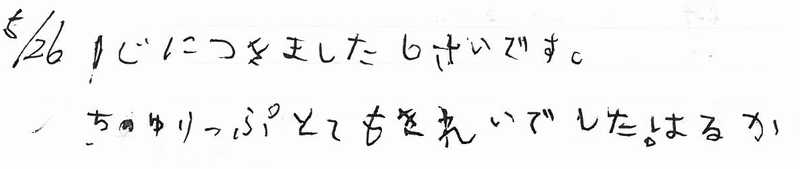 5/26 1じにつきました6さいです。
ちゅーりっぷとてもきれいでした。はるか